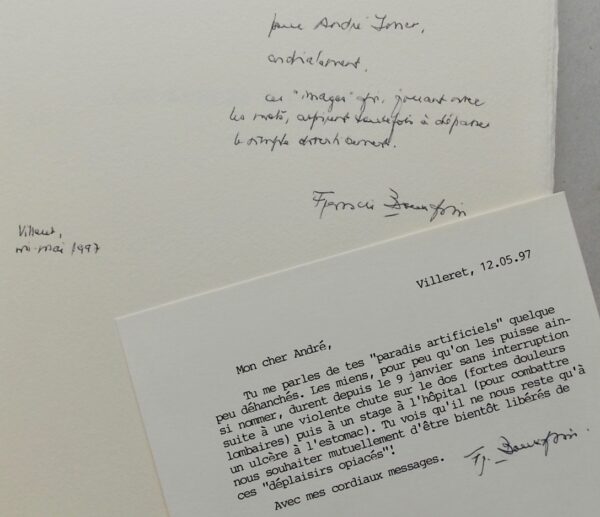 pour André
cordialement,
ces "images" qui, jouant avec
les mots, aspirent toutefois à dépasser
le simple divertissement.
Francis Bourquin
Villeret,
mi-mai 1997
Villeret, 12.05.97
Mon cher André,
Tu me parles de tes "paradis artificiels" quelque
peu déhanchés. Les miens, pour peu qu'on les puisse ain-
si nommer, durent depuis le 9 janvier sans interruption
suite à une violente chute sur le dos (fortes douleurs
lombaires) puis à un stage à l'hôpital (pour combattre
un ulcère à l'estomac). Tu vois qu'il ne nous reste qu'à
nous souhaiter mutuellement d'être bientôt libérés de
ces "déplaisirs opiacés"!
Avec mes cordiaux messages.
Fr. Bourquin